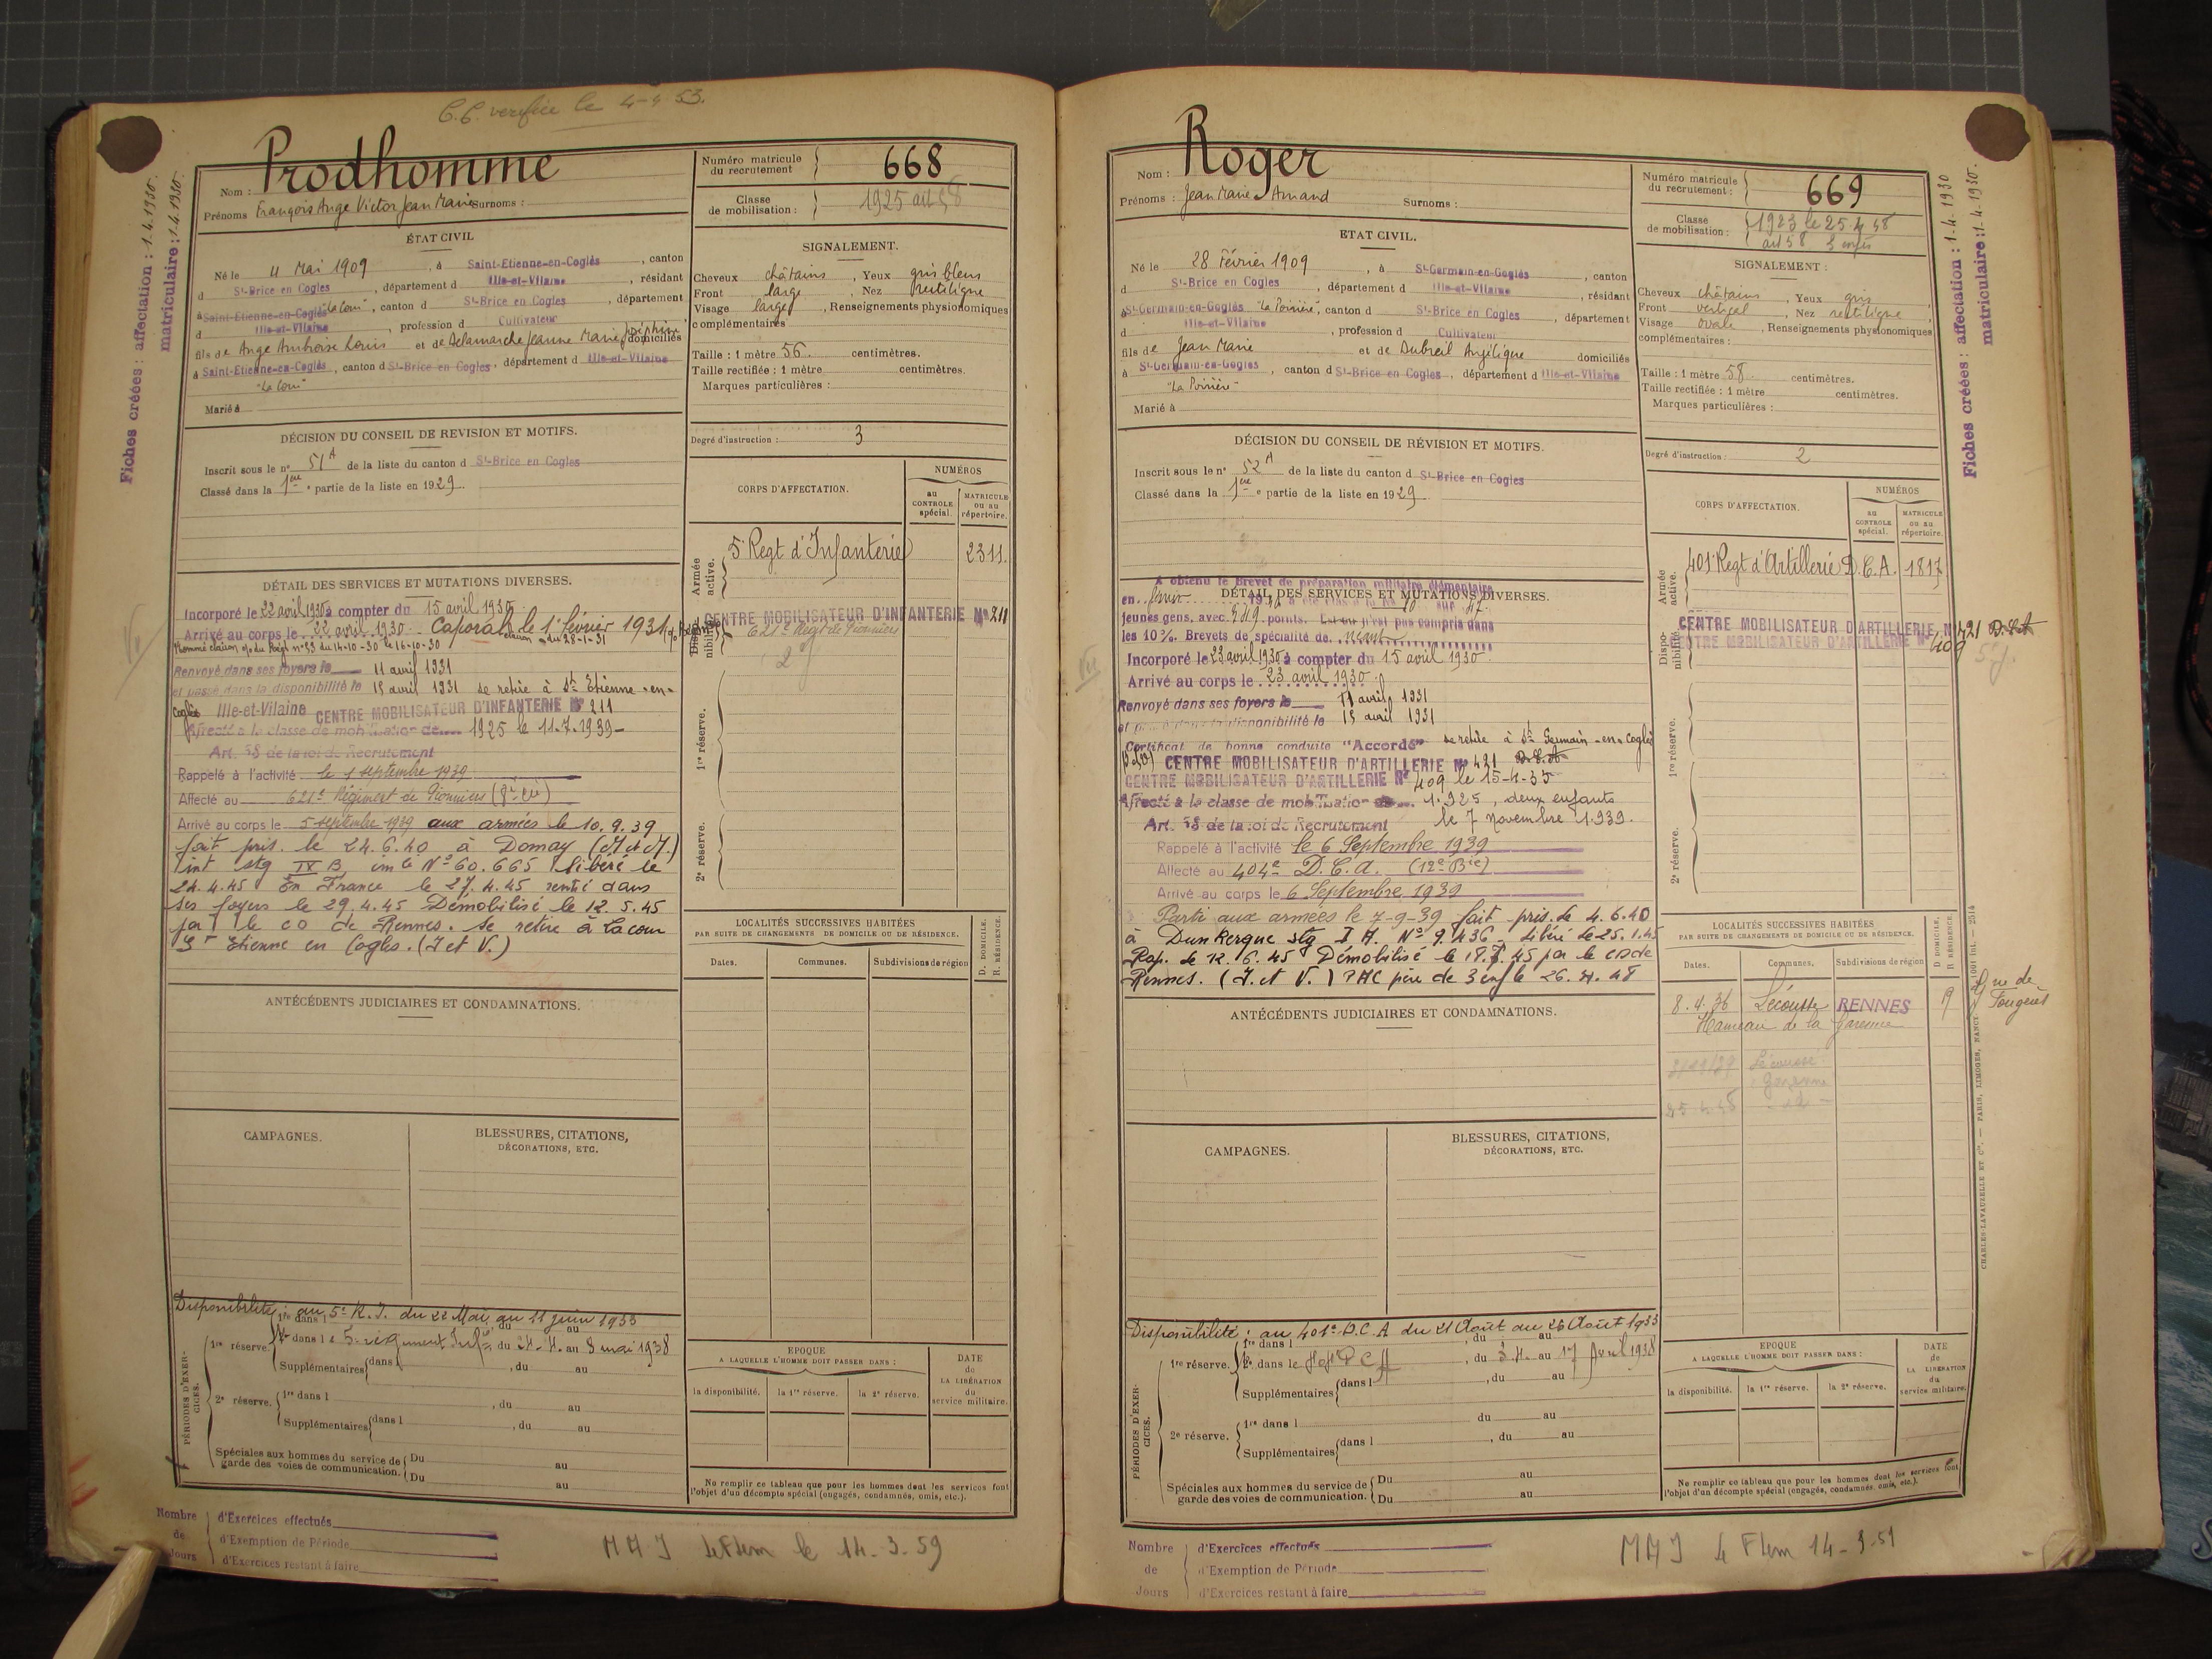 C.C. verifiée le 4-4 53.
Fiches créées : affectation : 1.4.1930.
matriculaire : 1.4.1930.
Nom : Prodhomme
Prénoms François Ange Victor Jean Marie Surnoms :
Numéro matricule du recrutement 668
Classe de mobilisation : 1925 art 58
ÉTAT CIVIL
Né le 4 Mai 1909, à Saint-Etienne-en-Coglès, canton
d St-Brice en Cogles, département d Ille-et-Vilaine, résidant
à Saint-Etienne-en-Coglès, canton d St-Brice en Cogles, département
d Ille-et-Vilaine, profession d Cultivateur
fils de Ange Ambroise Louis et de Delamarche Jeanne Marie Joséphine domiciliés
à Saint-Etienne-en-Coglès, canton d St-Brice en Cogles, département d Ille-et-Vilaine
Marié à
SIGNALEMENT.
Cheveux châtains, Yeux gris bleus
Front large, Nez rectiligne
Visage large, Renseignements physionomiques
complémentaires
Taille : 1 mètre 56 centimètres.
Taille rectifiée : 1 mètre centimètres.
Marques particulières :
Degré d'instruction : 3
DÉCISION DU CONSEIL DE REVISION ET MOTIFS.
Inscrit sous le n° 51 A de la liste du canton d St-Brice en Cogles
Classé dans la 1ère partie de la liste en 1929.
CORPS D'AFFECTATION.
NUMÉROS
au CONTROLE spécial.
MATRICULE ou au répertoire.
Armée active.
5e Regt d'Infanterie 2311.
Disponibilité
CENTRE MOBILISATEUR D'INFANTERIE N° 211
621e Regt de Pionniers
1re réserve.
2e réserve.
DÉTAIL DES SERVICES ET MUTATIONS DIVERSES.
Incorporé le 22 avril 1930 à compter du 15 avril 1930.
Arrivé au corps le 22 avril 1930. Caporal le 1er février 1931
Renvoyé dans ses foyers le 11 avril 1931
et passé dans la disponibilité le 15 avril 1931 se retire à St Etienne-en-
Coglès Ille-et-Vilaine CENTRE MOBILISATEUR D'INFANTERIE N° 211
Affecté à la classe de mobilisation de 1925 le 11-7-1939-
Art. 58 de la loi de Recrutement
Rappelé à l'activité le 1 septembre 1939
Affecté au 621e Régiment de Pionniers
Arrivé au corps le 5 septembre 1939 aux armées le 10.9.39
fait pris. le 24.6.40 à Domay
int stg IV B, im lé N° 60.665 libéré le
24.4.45 En France le 27.4.45 rentré dans
ses foyers le 29.4.45 Démobilisé le 12.5.45
par le CO de Rennes. Se retire à Lacour
St Etienne en Cogles. (I et V.)
LOCALITÉS SUCCESSIVES HABITÉES
PAR SUITE DE CHANGEMENTS DE DOMICILE OU DE RÉSIDENCE.
D. DOMICILE. R. RÉSIDENCE.
Dates. Communes. Subdivisions de région
ANTÉCÉDENTS JUDICIAIRES ET CONDAMNATIONS.
CAMPAGNES.
BLESSURES, CITATIONS,
DÉCORATIONS, ETC.
Disponibilité : au 5e R.I. du 22 Mai au 11 juin 1933
PÉRIODES D'EXERCICES.
1re réserve. 1re dans l du au
2e dans le 5e régiment Infie, du 24.4. au 8 mai 1938
Supplémentaires dans l, du au
2e réserve. 1re dans l, du au
Supplémentaires dans l, du au
Spéciales aux hommes du service de garde des voies de communication. Du au
Du au
EPOQUE
A LAQUELLE L'HOMME DOIT PASSER DANS :
la disponibilité. la 1re réserve. la 2e réserve.
DATE de LA LIBÉRATION du service militaire.
Ne remplir ce tableau que pour les hommes dont les services font
l'objet d'un décompte spécial (engagés, condamnés, omis, etc.).
Nombre de Jours
d'Exercices effectués
d'Exemption de Période
d'Exercices restant à faire
MAJ le 14-3-59
Nom : Roger
Prénoms : Jean Marie Amand Surnoms :
Numéro matricule du recrutement : 669
Classe de mobilisation : 1923 le 25.4.48
art 58 3 enfts
Fiches créées : affectation : 1-4-1930
matriculaire : 1-4-1930.
ETAT CIVIL.
Né le 28 Février 1909, à St-Germain-en-Coglès, canton
d St-Brice en Cogles, département d Ille-et-Vilaine, résidant
à St-Germain-en-Coglès "La Poirière", canton d St-Brice en Cogles, département
d Ille-et-Vilaine, profession d Cultivateur
fils de Jean Marie et de Dubreil Angélique domiciliés
à St-Germain-en-Coglès, canton d St-Brice en Cogles, département d Ille-et-Vilaine
"La Poirière"
Marié à
SIGNALEMENT :
Cheveux châtains, Yeux gris
Front vertical, Nez rectiligne
Visage ovale, Renseignements physionomiques
complémentaires :
Taille : 1 mètre 58 centimètres.
Taille rectifiée : 1 mètre centimètres.
Marques particulières :
Degré d'instruction : 2
DÉCISION DU CONSEIL DE RÉVISION ET MOTIFS.
Inscrit sous le n° 52 A de la liste du canton d St-Brice en Cogles
Classé dans la 1ère partie de la liste en 1929
CORPS D'AFFECTATION.
NUMÉROS
au CONTROLE spécial.
MATRICULE ou au répertoire.
Armée active.
401e Regt d'Artillerie D.C.A. 1817
Disponibilité
CENTRE MOBILISATEUR D'ARTILLERIE N° 421
CENTRE MOBILISATEUR D'ARTILLERIE N° 409
1re réserve.
2e réserve.
A obtenu le Brevet de préparation militaire élémentaire
DÉTAIL DES SERVICES ET MUTATIONS DIVERSES.
jeunes gens, avec points.
les 10 %. Brevets de spécialité de néant
Incorporé le 23 avril 1930 à compter du 15 avril 1930.
Arrivé au corps le 23 avril 1930
Renvoyé dans ses foyers le 11 avril 1931
et passé dans la disponibilité le 15 avril 1931
Certificat de bonne conduite "Accordé" se retire à St Germain-en-Coglès
CENTRE MOBILISATEUR D'ARTILLERIE N° 421
CENTRE MOBILISATEUR D'ARTILLERIE N° 409 le 15-4-35
Affecté à la classe de mobilisation de 1925, deux enfants
Art. 58 de la loi de Recrutement le 7 Novembre 1939.
Rappelé à l'activité le 6 Septembre 1939
Affecté au 404e D.C.A. (12e Bie)
Arrivé au corps le 6 Septembre 1939
Parti aux armées le 7-9-39 fait pris. le 4.6.40
à Dunkerque stg I A. N° 9.436. Libéré le 25.1.45
Rap. le 12.6.45 Démobilisé le 18.7.45 par le CD de
Rennes. (I. et V.) père de 3 enf le 26.4.48
LOCALITÉS SUCCESSIVES HABITÉES
PAR SUITE DE CHANGEMENTS DE DOMICILE OU DE RÉSIDENCE.
D. DOMICILE. R. RÉSIDENCE.
Dates. Communes. Subdivisions de région
8.4.36 Lécousse RENNES rue de Fougères
Hameau de la Garenne
Lécousse
Garenne
25.4.48
ANTÉCÉDENTS JUDICIAIRES ET CONDAMNATIONS.
CAMPAGNES.
BLESSURES, CITATIONS,
DÉCORATIONS, ETC.
Disponibilité : au 401e D.C.A du 21 Août au 26 Août 1933
PÉRIODES D'EXERCICES.
1re réserve. 1re dans l, du au
2e dans le, du au 17 Avril 1938
Supplémentaires dans l, du au
2e réserve. 1re dans l du au
Supplémentaires dans l, du au
Spéciales aux hommes du service de garde des voies de communication. Du au
Du au
EPOQUE
A LAQUELLE L'HOMME DOIT PASSER DANS :
la disponibilité. la 1re réserve. la 2e réserve.
DATE de LA LIBÉRATION du service militaire.
Ne remplir ce tableau que pour les hommes dont les services font
l'objet d'un décompte spécial (engagés, condamnés, omis, etc.).
CHARLES-LAVAUZELLE ET Cie. — PARIS, LIMOGES, NANCY
Nombre de Jours
d'Exercices effectués
d'Exemption de Période
d'Exercices restant à faire
MAJ